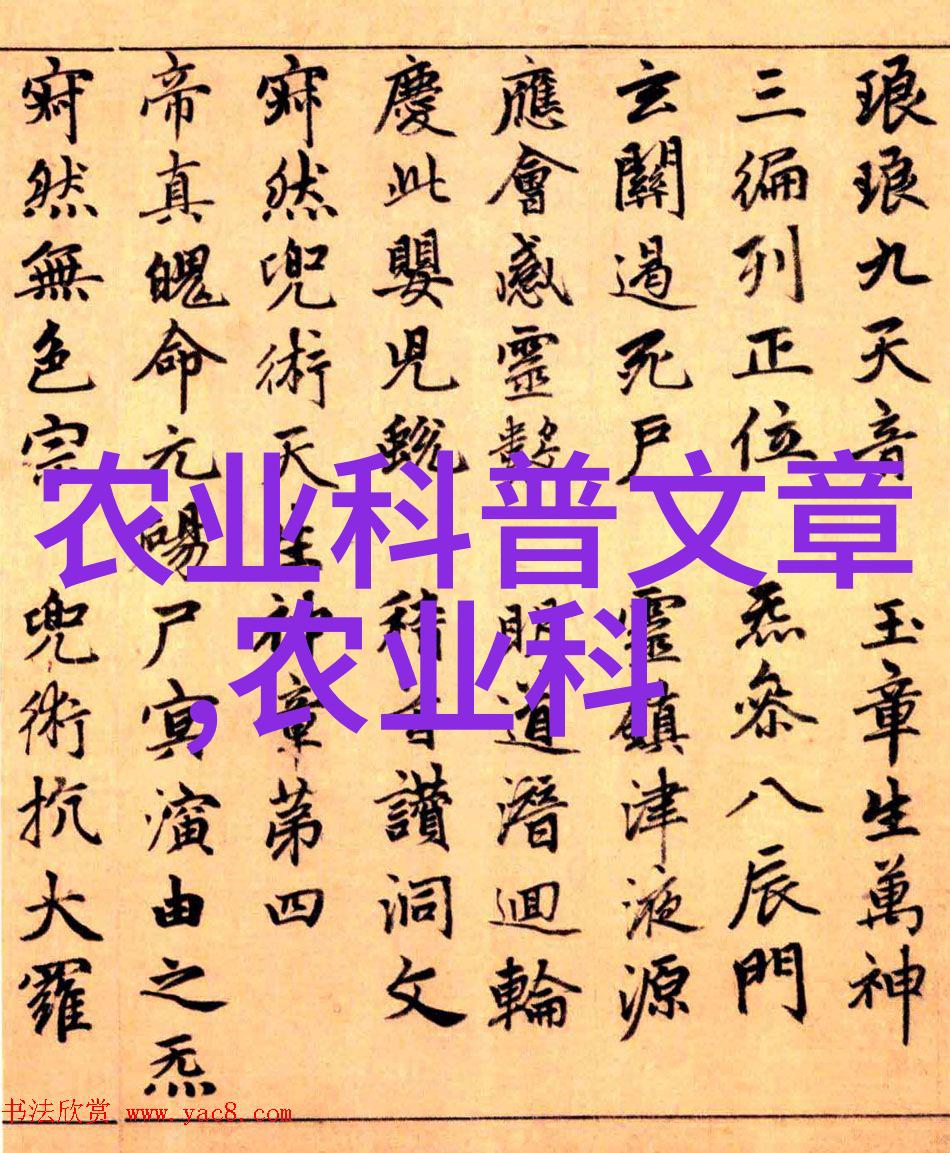 琅琅九天音玉章生萬神
三編列正位炁叅八辰門
玄關過死戶靈鎮津液源
應會感靈數明道潛迴輪
慶此嬰兒蛻稽首讚洞文
寂然兜術天生神章第四
帝真魄命元碭尸冥演由之炁
寂然無色宗兜術抗大羅
农业科普文章
,农业科
书法欣赏 www.yac8.com